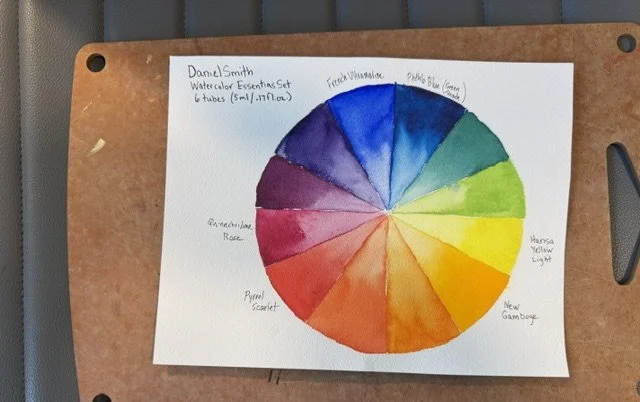 Daniel Smith
Watercolor Essentials Set
6 tubes (5ml/.17fl.oz)
French Ultramarine
Phthlo Blue (Green
Shade)
Hansa
Yellow
Light
New
Gamboge
Pyrrol
Scarlet
Quinacridone
Rose